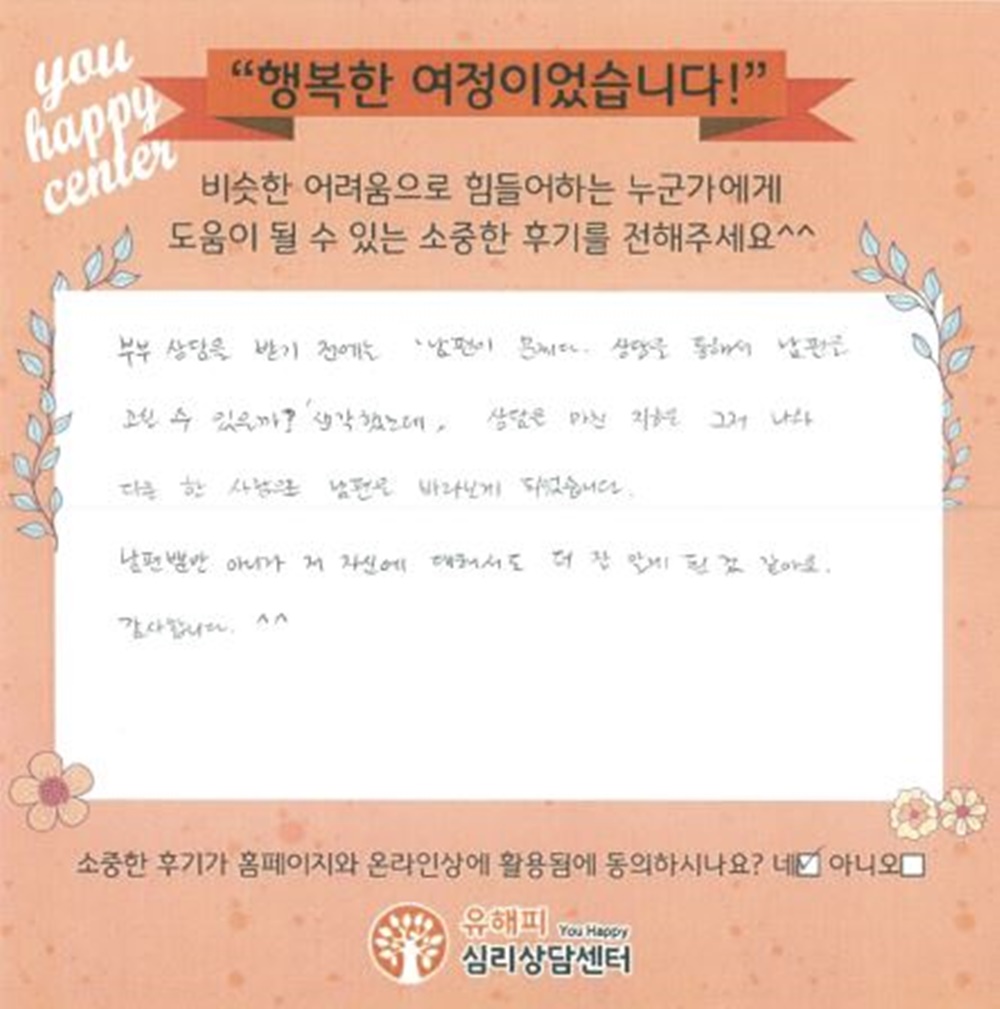 you
happy
center
“행복한 여정이었습니다!”
비슷한 어려움으로 힘들어하는 누군가에게
도움이 될 수 있는 소중한 후기를 전해주세요^^
부부 상담을 받기 전에는 '남편이 문제다. 상담을 통해서 남편을
고칠 수 있을까?' 생각했는데, 상담을 마친 지금은 그저 나와
다른 한 사람으로 남편을 바라보게 되었습니다.
남편뿐만 아니라 저 자신에 대해서도 더 잘 알게 된 것 같아요.
감사합니다. ^^
소중한 후기가 홈페이지와 온라인상에 활용됨에 동의하시나요? 네☑ 아니오☐
유해피 You Happy
심리상담센터